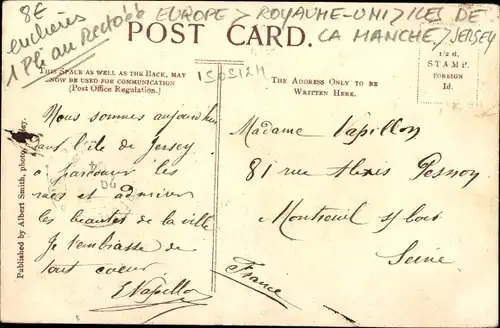 8€
enchères
1 Pli au Recto
EUROPE > ROYAUME-UNI > ILES DE
LA MANCHE / JERSEY
POST CARD.
THIS SPACE AS WELL AS THE BACK, MAY
NOW BE USED FOR COMMUNICATION
(Post Office Regulation.)
150512H
THE ADDRESS ONLY TO BE
WRITTEN HERE.
½d.
STAMP.
FOREIGN
1d.
Published by Albert Smith, photo
Nous sommes aujourd'hui
dans l'île de Jersey
à parcourir les
rues et admirer
les beautés de la ville
Je t'embrasse de
tout coeur
E Vapillon
Madame Vapillon
81 rue Alexis Pesnon
Montreuil s/bois
Seine
France